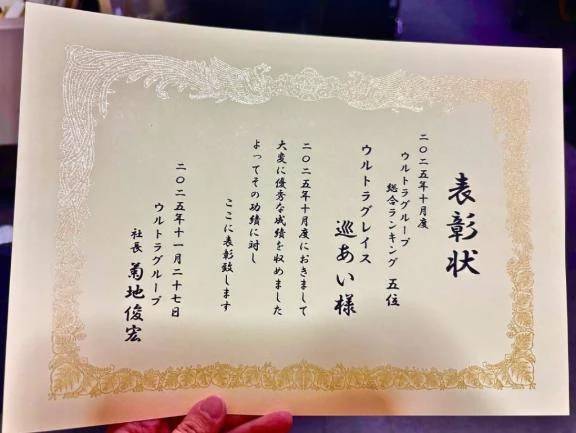 表彰状
二〇二五年十月度
ウルトラグループ
総合ランキング 五位
ウルトラグレイス
巡あい様
二〇二五年十月度におきまして
大変に優秀な成績を収めました
よってその功績に対し
ここに表彰致します
二〇二五年十一月二十七日
ウルトラグループ
社長 菊地俊宏